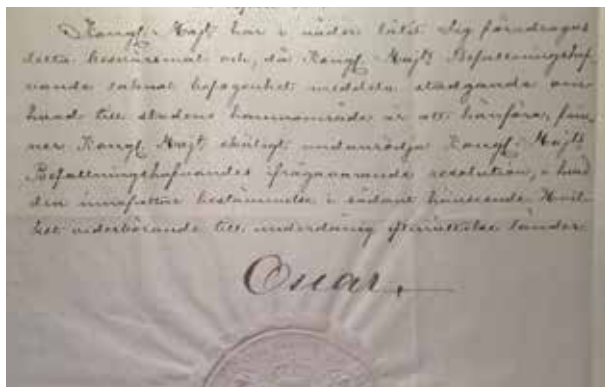 Kongl. Majt har i nåder låtit Sig föredragas
detta besvärsmål och, då Kongl. Majts Befallningshaf-
vande saknat befogenhet meddela stadgande om
hvad till stadens hamnområde är att hänföra, fin-
ner Kongl. Majt skäligt undanrödja Kongl. Majts
Befallningshafvandes ifrågavarande resolution, i hvad
den innefattar bestämmelse i sådant hänseende. Hvil-
ket vederbörande till underdånig efterrättelse länder.
Oscar.